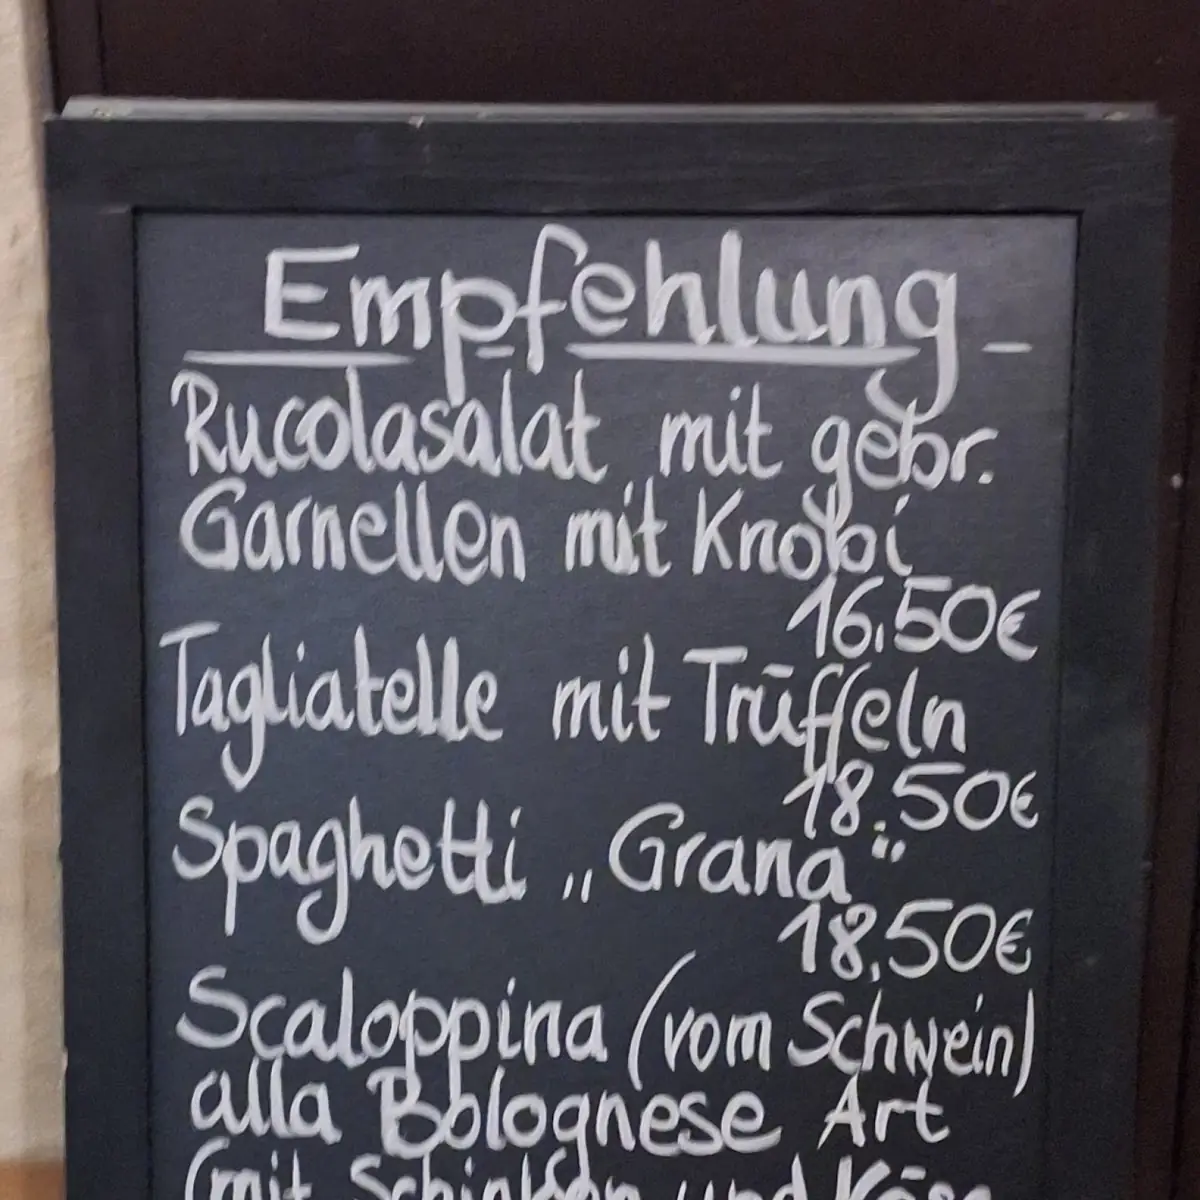 Empfehlung
Rucolasalat mit gebr.
Garnellen mit Knobi
16,50€
Tagliatelle mit Trüffeln
18.50€
Spaghetti „Grana“
18,50€
Scaloppina (vom Schwein)
alla Bolognese Art
(mit Schinken und Käse